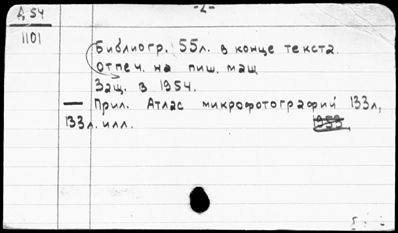 Д 54
-2-
1101
Библиогр. 55л. в конце текста.
Отпеч. на пиш. маш
Защ. в 1954.
— Прил. Атлас микрофотографий 133л,
133л. илл.